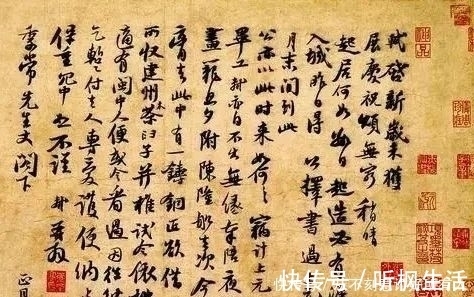 軾啓新歲未獲
展慶祝頌無窮稍晴
起居何如數日起造必有
入城昨日得公擇書過
月末間到此
公亦以此時來如何竊計上元
畢工軾亦自不出無緣奉陪夜
畫籠旦夕附陳隆船去次今
膏去此中有一鑄銅匠欲借
所收建州木茶臼子并椎試令依
適有閩中人便或令看過因往
乞暫付去人專愛護便納上
保重冗中恕不謹軾再拜
季常先生丈閣下
正月
快传号/听枫生活